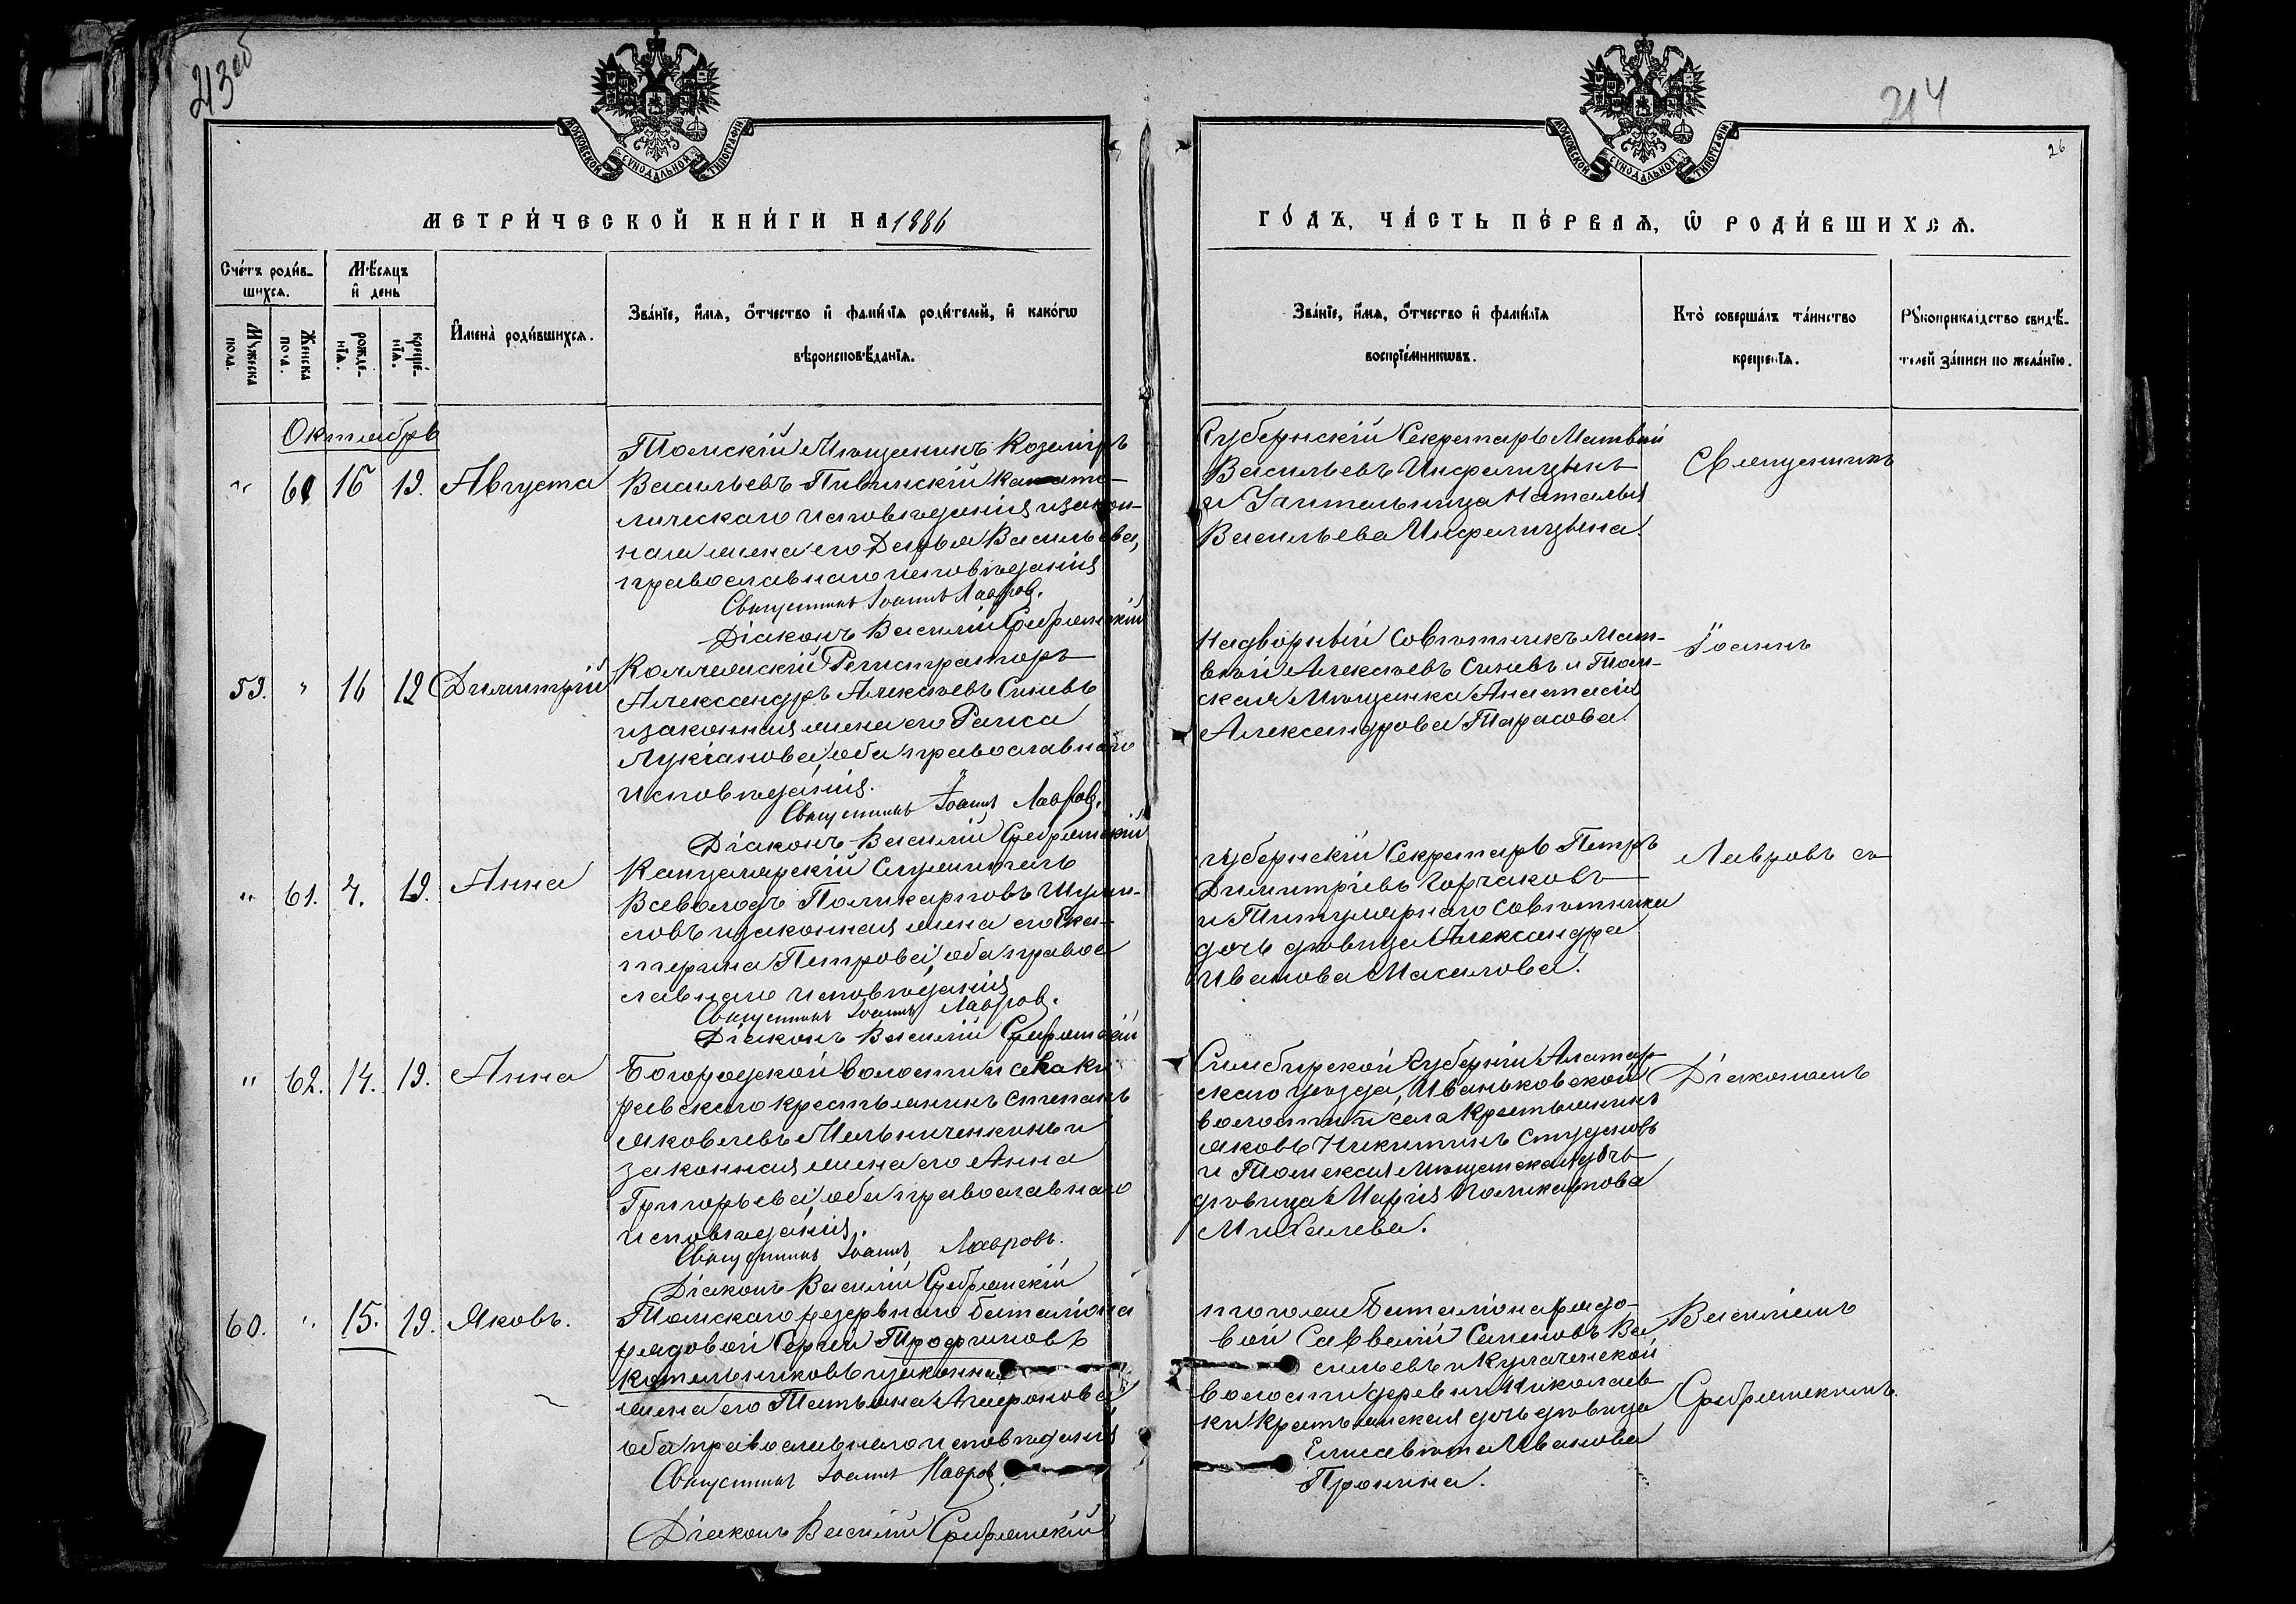 213 об
214
26
МОСКОВСКОЙ СѴНОДАЛЬНОЙ ТИПОГРАФІИ
МОСКОВСКОЙ СѴНОДАЛЬНОЙ ТИПОГРАФІИ
МЕТРИ́ЧЕСКОЙ КНИ́ГИ НА 1886
ГО́ДЪ, ЧА́СТЬ ПЕ́РВАЯ, Ѡ РОДИ́ВШИХСЯ.
Сче́тъ роди́в-
шихся.
Мꙋ́жеска пола.
Же́нска пола.
Мѣ́сяцъ
и день
рожде́-
нїя.
креще́-
нїя.
Имена̀ роди́вшихся.
Зва́нїе, и́мя, о́тчество и фами́лїя роди́телей, и како́гѡ
вѣроисповѣ́данїя.
Зва́нїе, и́мя, о́тчество и фами́лїя
воспрїе́мникѡвъ.
Кто̀ соверша́лъ та́инство
креще́нїя.
Рꙋкоприкла́дство свидѣ́-
телей за́писи по жела́нїю.
Октябрь
" 60 16 19. Августа
Томскій Мѣщанинъ Каземіръ
Васильевъ Пивинскій Като-
лическаго исповѣданія и закон-
ная жена его Дарья Васильева,
православнаго исповѣданія
Священникъ Іоаннъ Лавровъ.
Діаконъ Василій Сребрянскій
Губернскій Секретарь Матвѣй
Васильевъ
и Учительница Наталья
Васильева
Священникъ
59. " 16 19 Димитрій
Коллежскій Регистраторъ
Александръ Алексѣевъ Синевъ
и законная жена его Раиса
Лукіанова, оба православнаго
исповѣданія.
Священникъ Іоаннъ Лавровъ.
Діаконъ Василій Сребрянскій
Надворный Совѣтникъ Мат-
вѣй Алексѣевъ Синевъ и Том-
ская Мѣщанка Анастасія
Александрова Тарасова.
Іоаннъ
" 61. 7. 19. Анна
Канцелярскій Служитель
Всеволодъ Поликарповъ
и законная жена его Ека-
терина Петрова, оба правос
лавнаго исповѣданія
Священникъ Іоаннъ Лавровъ.
Діаконъ Василій Сребрянскій
Губернскій Секретарь Петръ
Димитріевъ Горчаковъ
и Титулярнаго Совѣтника
дочь дѣвица Александра
Иванова Масалова.
Лавровъ съ
" 62. 14. 19. Анна
Богородской волости и села Ки
реевскаго крестьянинъ Степанъ
Яковлевъ Мельниченковъ и
законная жена его Анна
Григорьева, оба православнаго
исповѣданія.
Священникъ Іоаннъ Лавровъ.
Діаконъ Василій Сребрянскій
Симбирской Губерніи Алатыр-
скаго уѣзда, Иваньковской
волости и села Крестьянинъ
Яковъ Никитинъ Студеновъ
и Томская Мѣщанская дочь
дѣвица Марія Поликарпова
Михалева.
Діакономъ
60. " 15. 19. Яковъ.
Томскаго резервнаго баталіона
рядовой Сергій Трофимовъ
Котельниковъ и законная
жена его Татьяна Миронова
оба православнаго исповѣданія
Священникъ Іоаннъ Лавровъ.
Діаконъ Василій Сребрянскій
того же баталіона рядо-
вой Савватій Семеновъ Ва
сильевъ и
волости деревни Николаев
ки Крестьянская дочь дѣвица
Елисавета Иванова
Пронина.
Василіемъ
Сребрянскимъ.